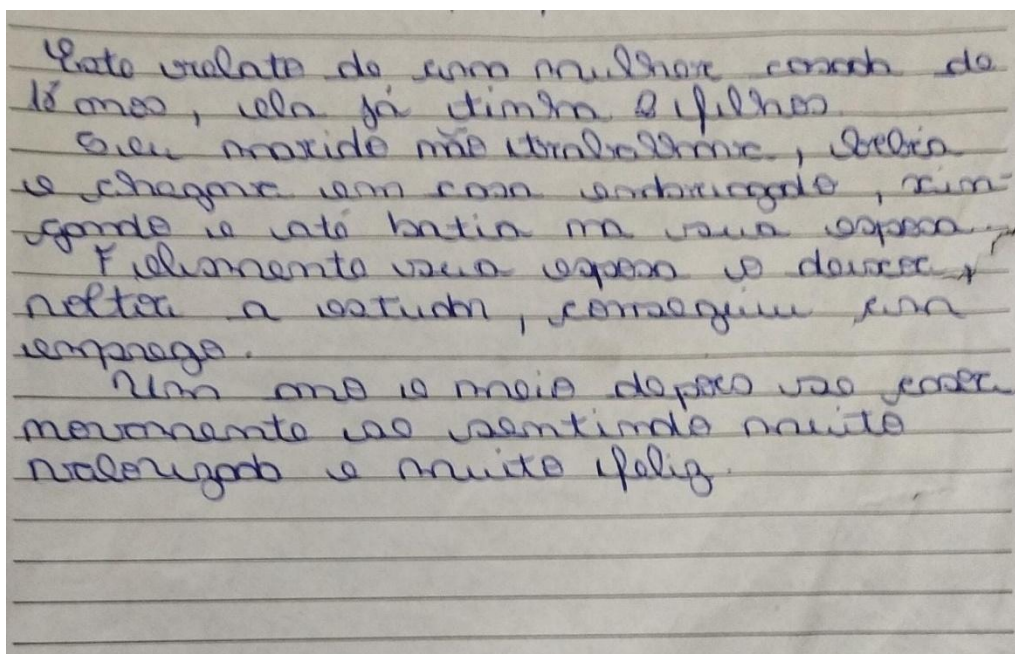 Este relato de uma mulher casada de
18 anos, ela já tinha 2 filhos.
Seu marido não trabalhava, bebia
e chegava em casa embriagado, xin-
gando e até batia na sua esposa.
Felismente sua esposa o deixou,
voltou a estudar, conseguiu um
emprego.
Um ano e meio depois se casou
novamente se sentindo muito
valorizada e muito feliz.